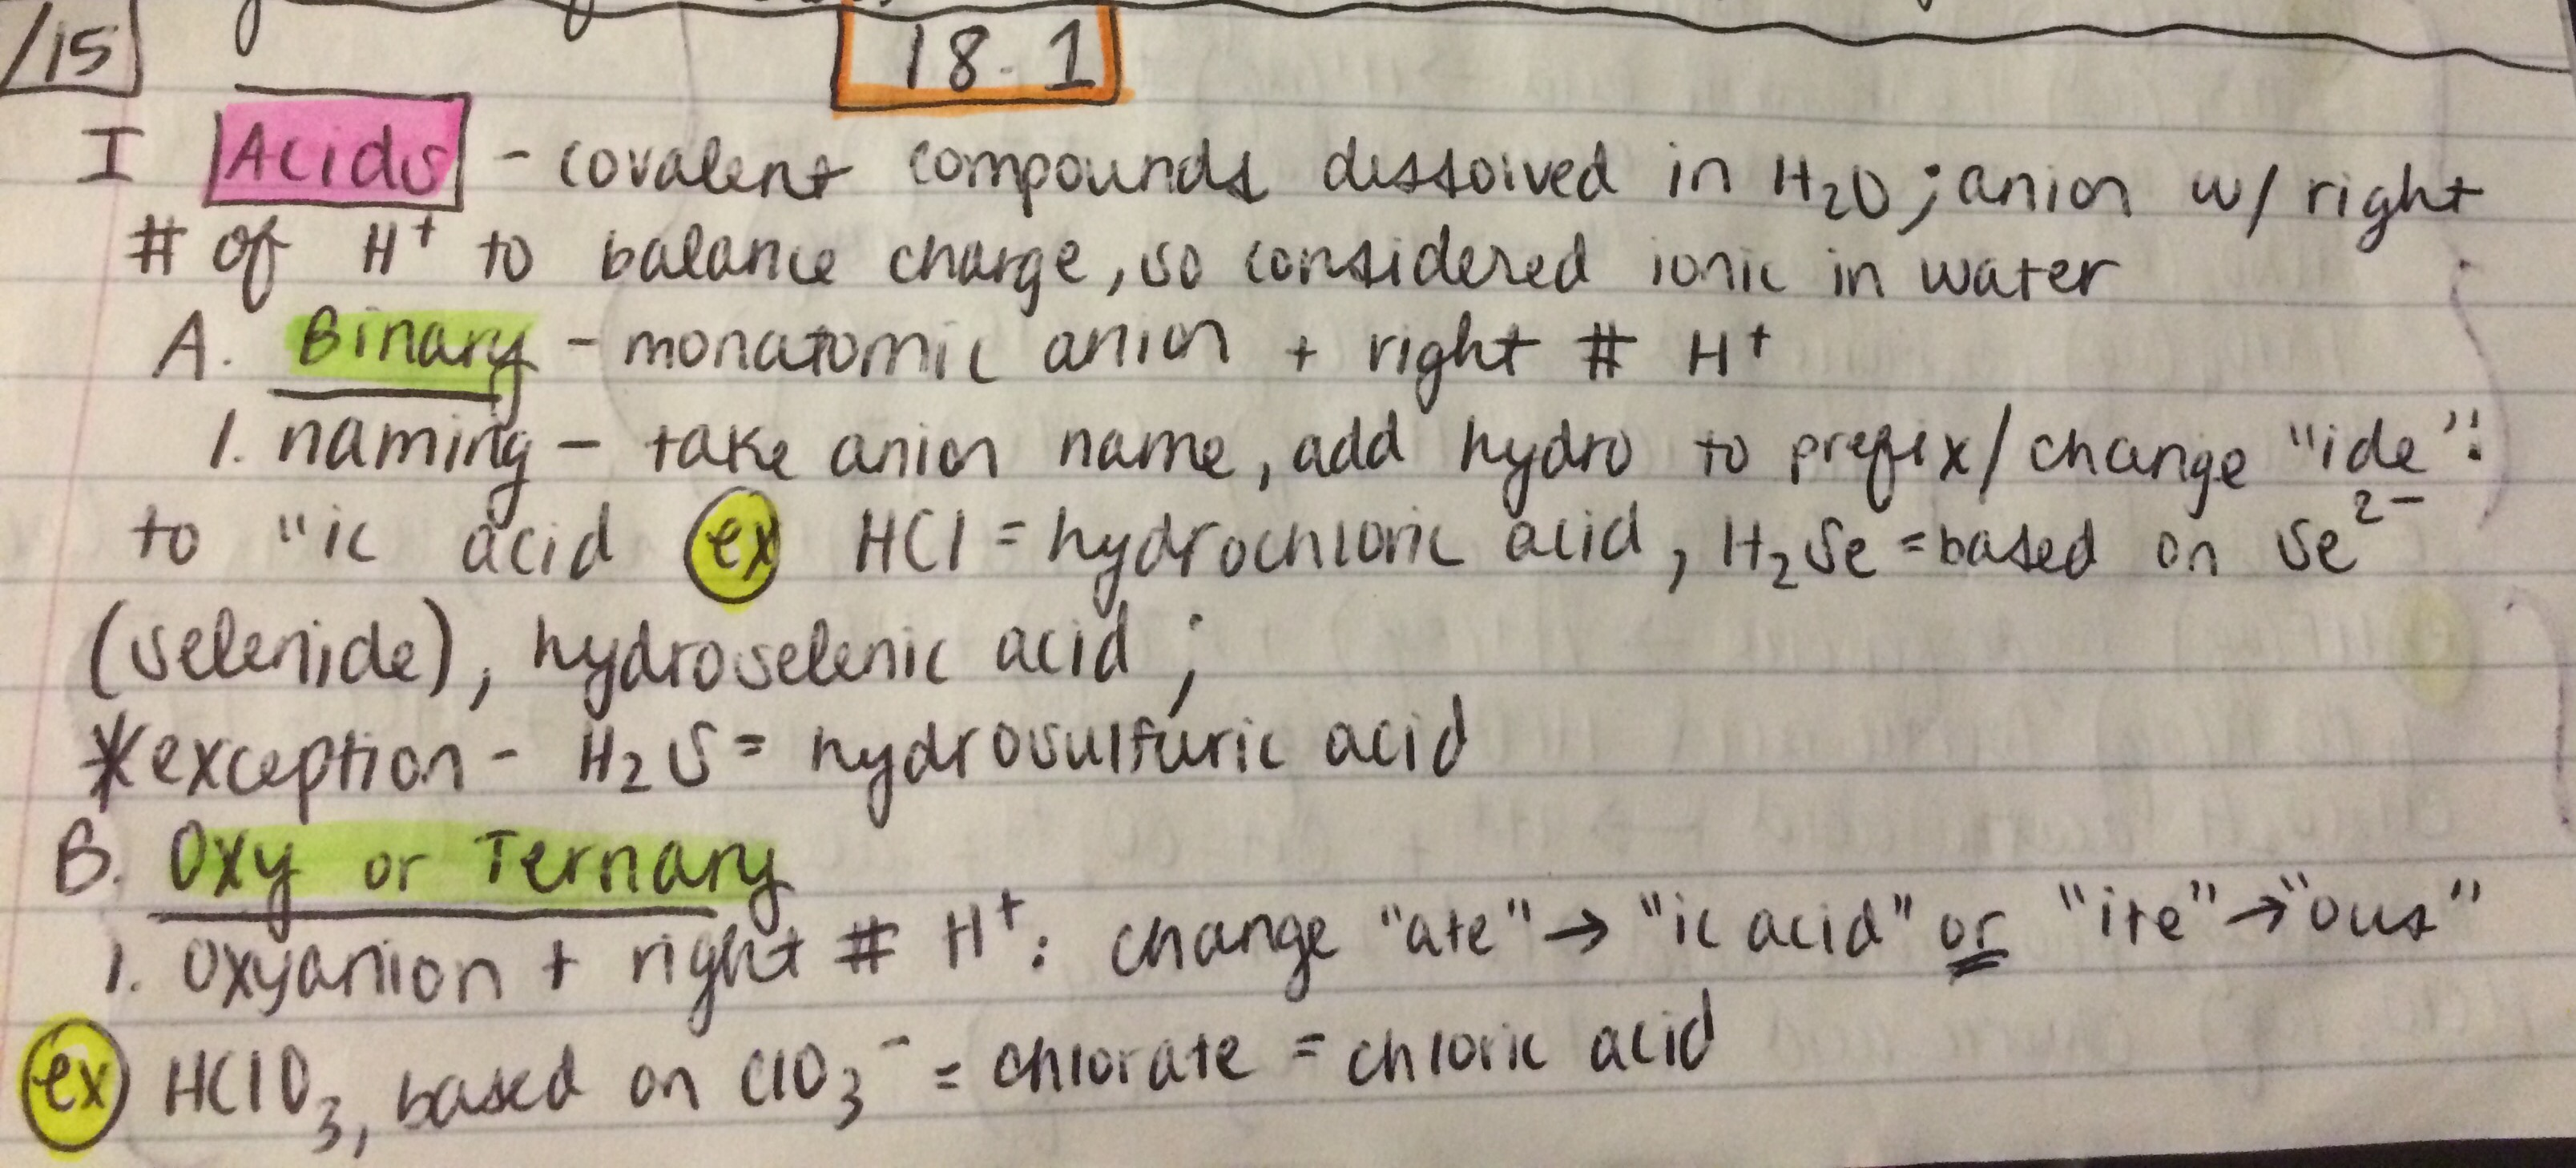 /15
18.1
I Acids - covalent compounds dissolved in H₂O; anion w/ right
# of H⁺ to balance charge, so considered ionic in water
A. Binary - monatomic anion + right # H⁺
1. naming - take anion name, add hydro to prefix/change "ide":
to "ic acid ex HCl = hydrochloric acid, H₂Se = based on Se²⁻
(selenide), hydroselenic acid;
*exception - H₂S = hydrosulfuric acid
B. Oxy or Ternary
1. Oxyanion + right # H⁺: change "ate" → "ic acid" or "ite" → "ous"
ex HClO₃, based on ClO₃⁻ = chlorate = chloric acid